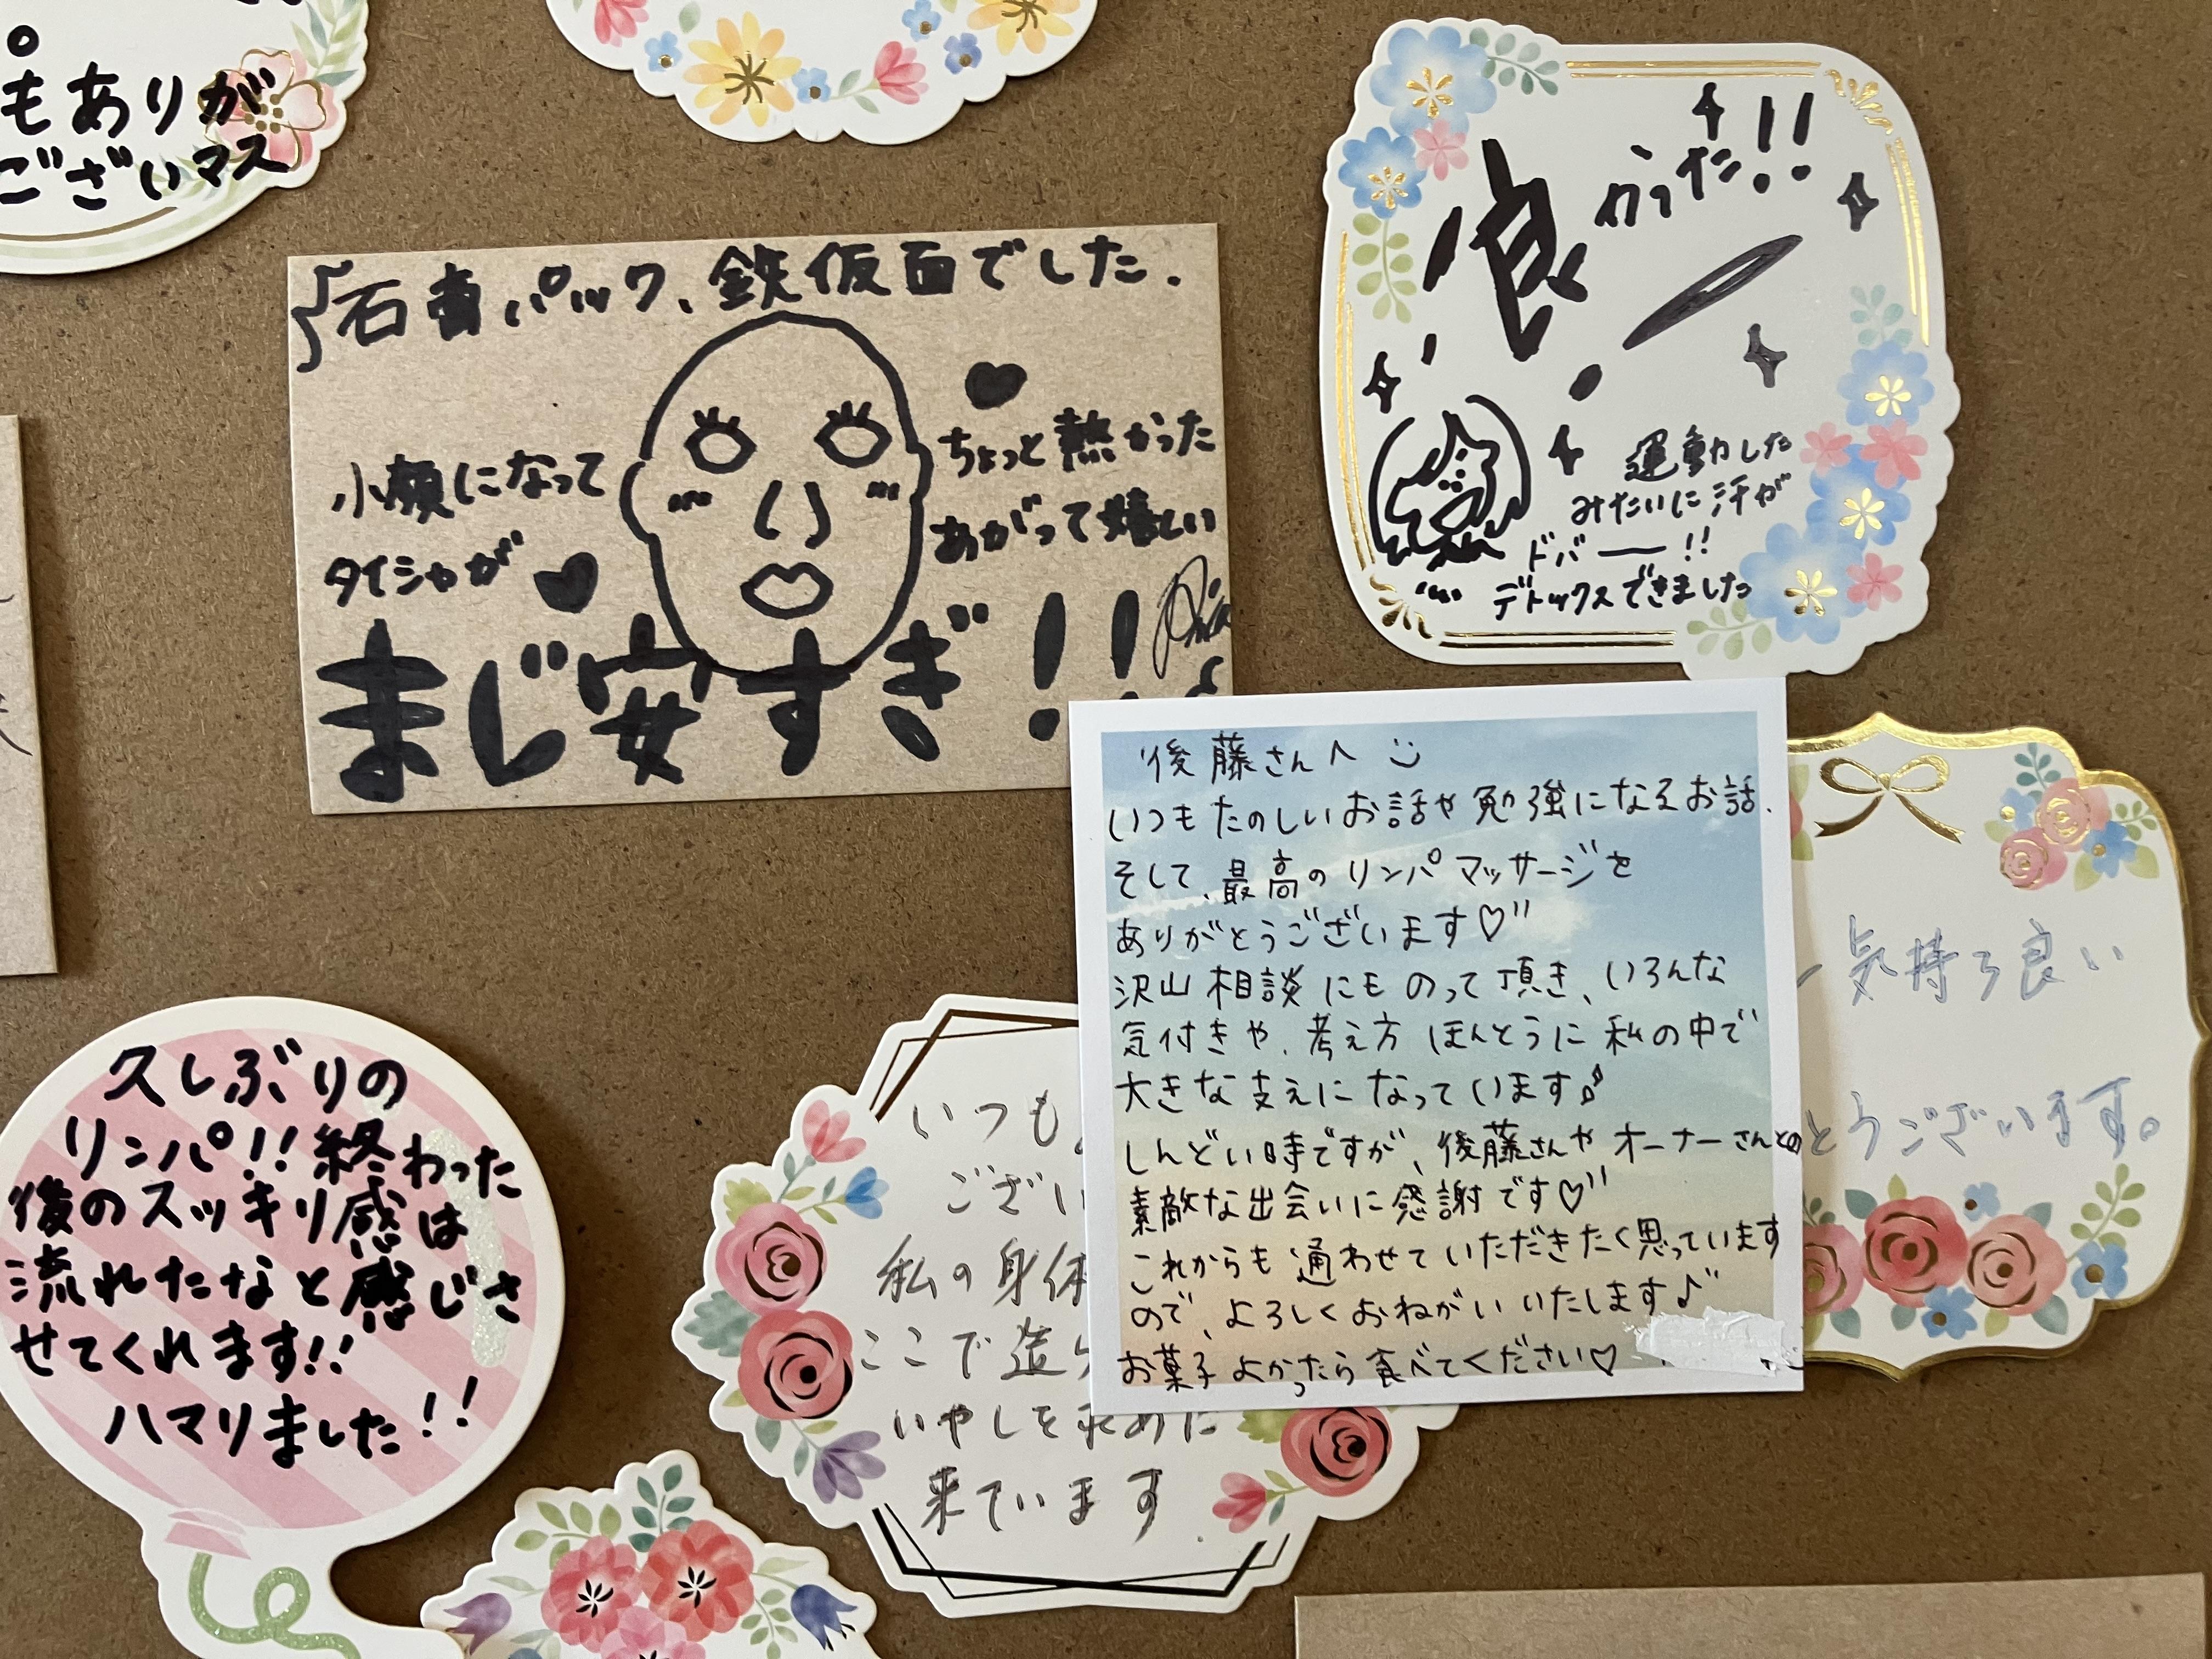 もありが
ございマス
石膏パック、鉄仮面でした.
小顔になって
タイシャが
ちょっと熱かった
あがって嬉しい
まじ安すぎ!!
良かった!!
運動した
みたいに汗が
ドバー!!
デトックスできました
後藤さんへ
いつもたのしいお話や勉強になるお話、
そして、最高のリンパマッサージを
ありがとうございます♡"
沢山相談にものって頂き、いろんな
気付きや、考え方ほんとうに私の中で
大きな支えになっています♪
しんどい時ですが、後藤さんやオーナーさんとの
素敵な出会いに感謝です♡"
これからも通わせていただきたく思っています
ので、よろしくおねがいいたします♪"
お菓子よかったら食べてください♡
気持ち良い
とうございます。
久しぶりの
リンパ!!終わった
後のスッキリ感は
流れたなと感じさ
せてくれます!!
ハマりました!!
いつも
ござい
私の身体
ここで造
いやしを求めに
来ています.